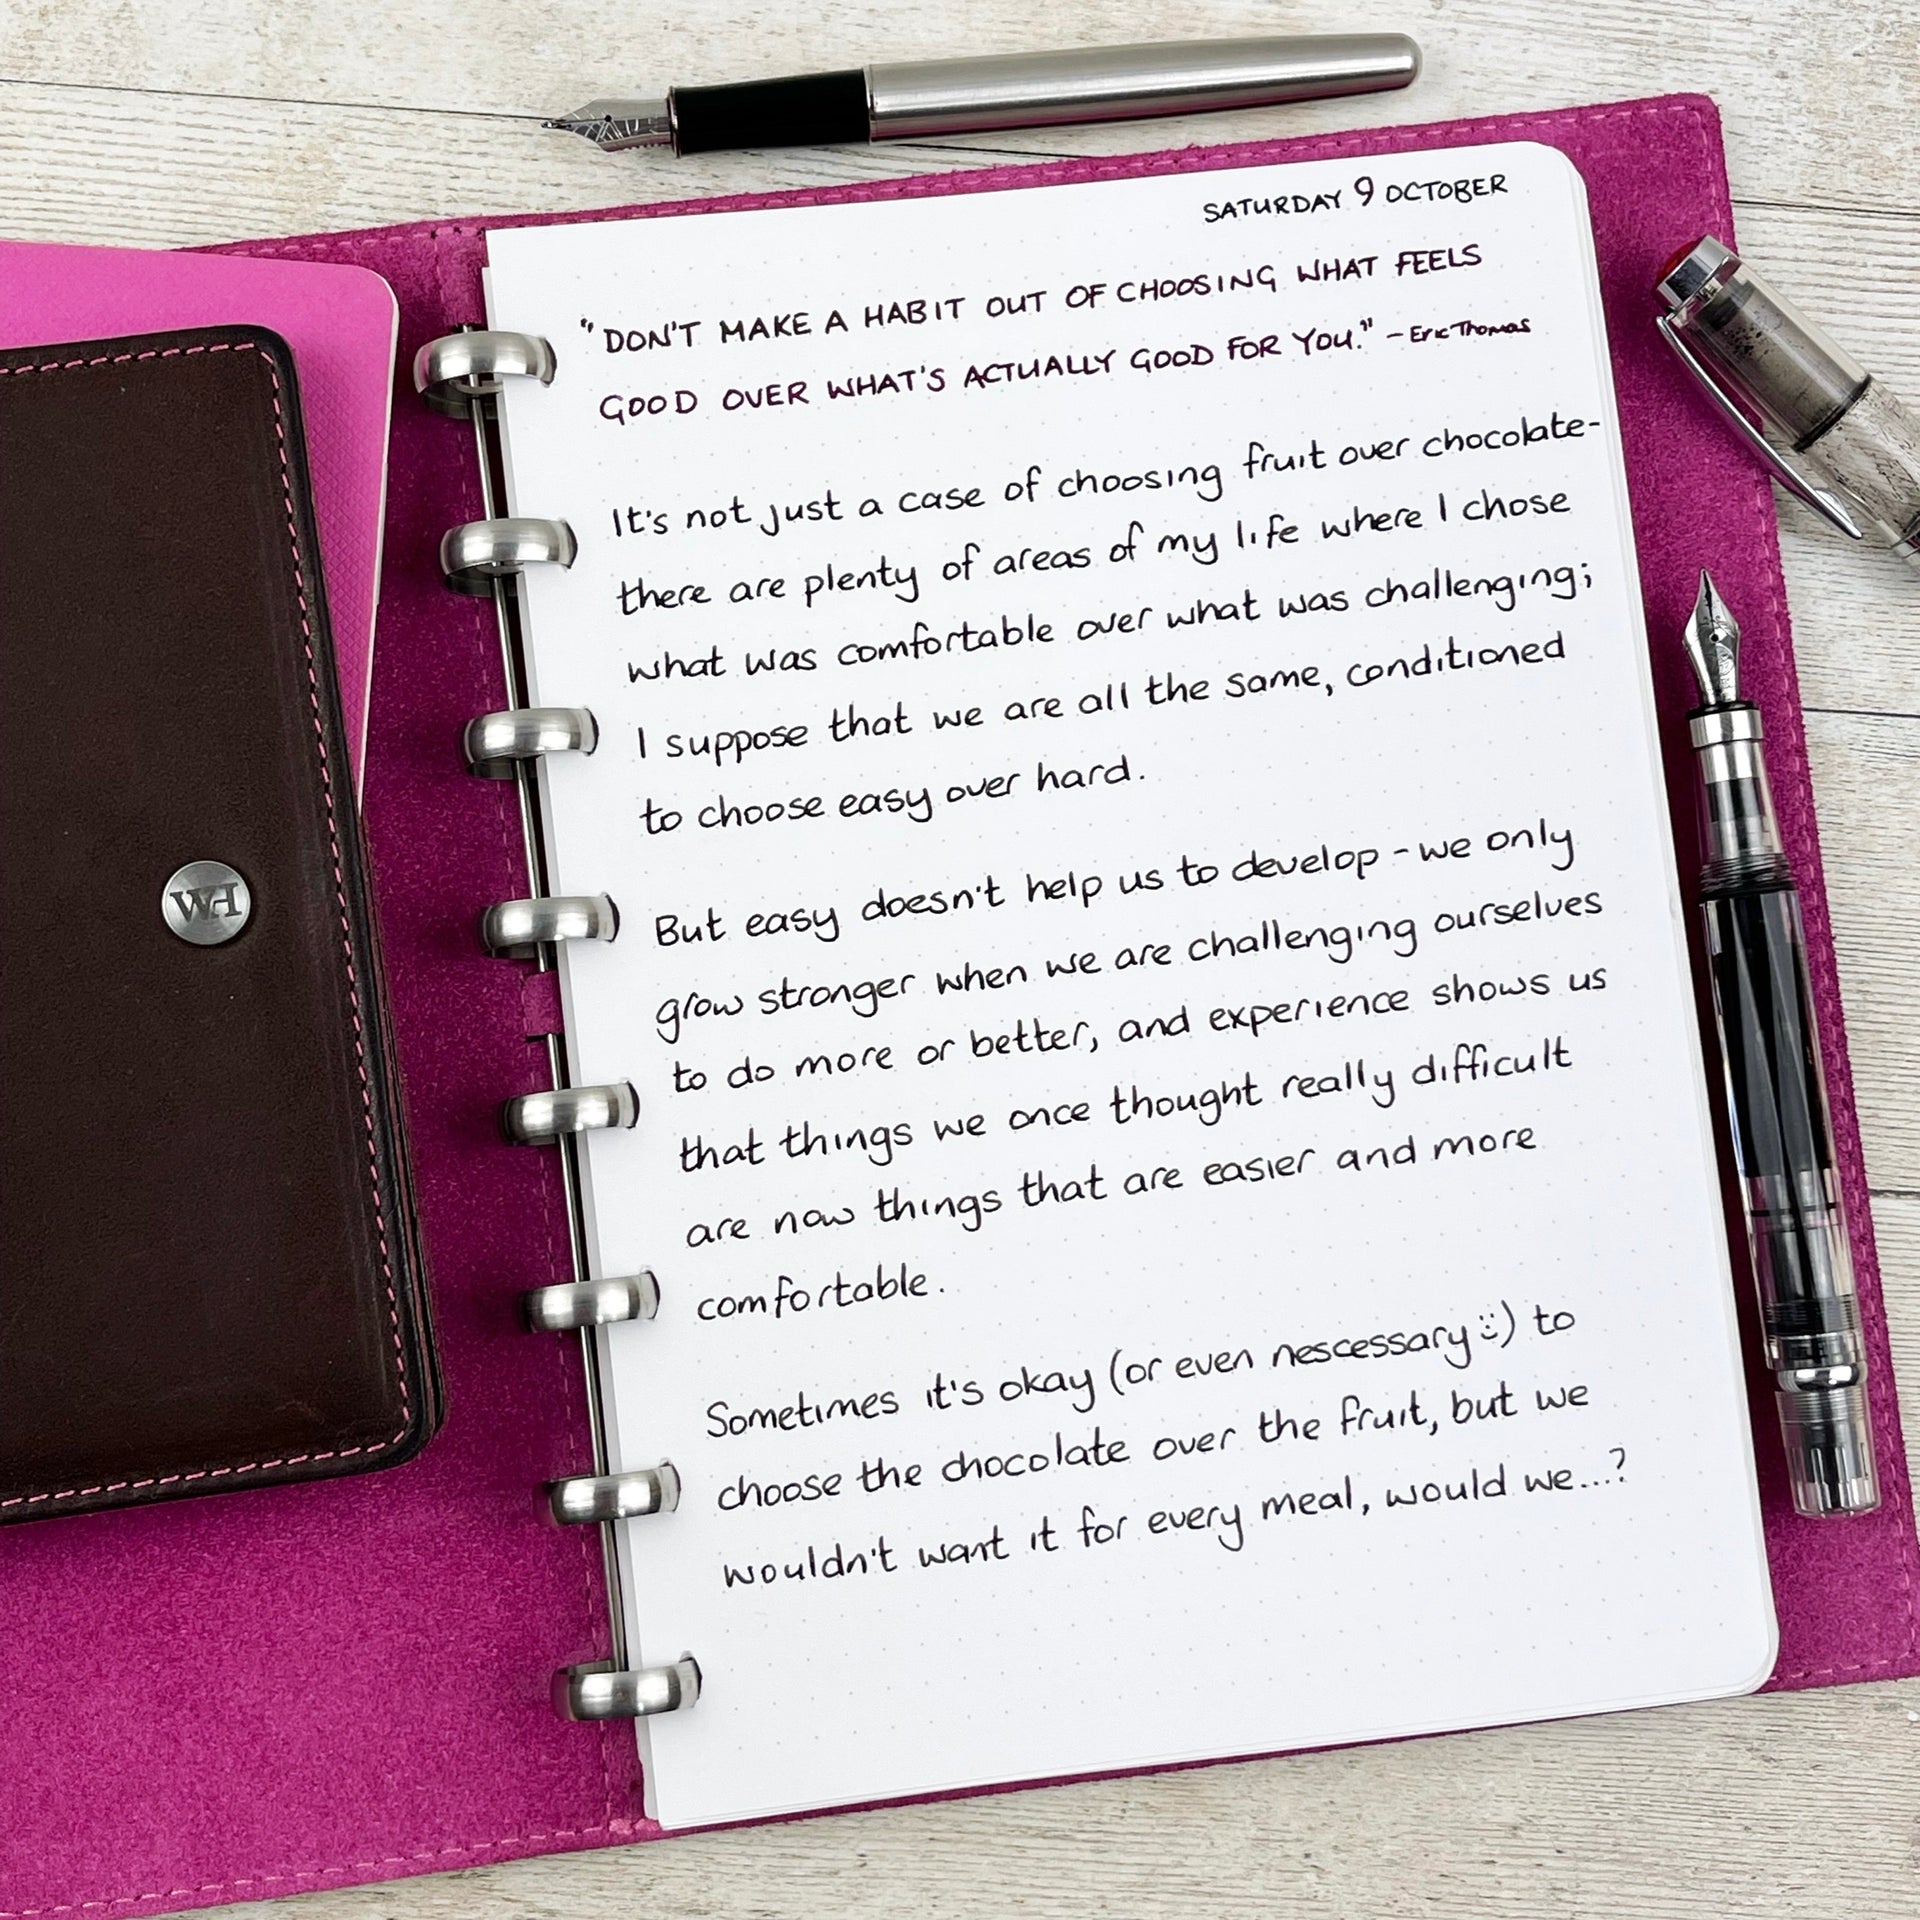 SATURDAY 9 OCTOBER
"DON'T MAKE A HABIT OUT OF CHOOSING WHAT FEELS
GOOD OVER WHAT'S ACTUALLY GOOD FOR YOU." - Eric Thomas
It's not just a case of choosing fruit over chocolate-
there are plenty of areas of my life where I chose
what was comfortable over what was challenging;
I suppose that we are all the same, conditioned
to choose easy over hard.
But easy doesn't help us to develop - we only
grow stronger when we are challenging ourselves
to do more or better, and experience shows us
that things we once thought really difficult
are now things that are easier and more
comfortable.
Sometimes it's okay (or even nescessary :) to
choose the chocolate over the fruit, but we
wouldn't want it for every meal, would we...?
WH